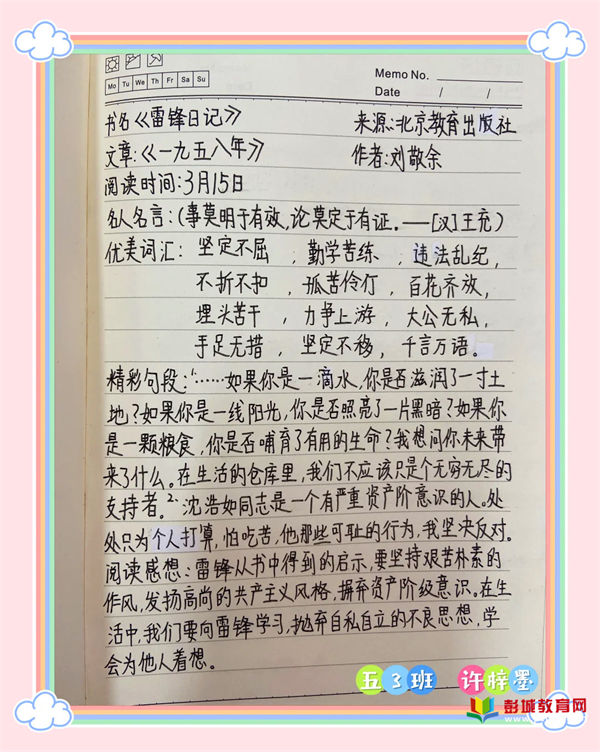 Mo Tu We Th Fr Sa Su
Memo No.
Date / /
书名《雷锋日记》 来源:北京教育出版社
文章:《一九五八年》 作者:刘敬余
阅读时间:3月15日
名人名言:(事莫明于有效,论莫定于有证。——[汉]王充)
优美词汇: 坚定不屈 , 勤学苦练 , 违法乱纪,
不折不扣 , 孤苦伶仃 , 百花齐放,
埋头苦干 , 力争上游 , 大公无私,
手足无措 , 坚定不移 , 千言万语。
精彩句段:1.……如果你是一滴水,你是否滋润了一寸土
地?如果你是一线阳光,你是否照亮了一片黑暗?如果你
是一颗粮食,你是否哺育了有用的生命?我想问你未来带
来了什么。在生活的仓库里,我们不应该只是个无穷无尽的
支持者。2.沈浩如同志是一个有严重资产阶意识的人。处
处只为个人打算,怕吃苦,他那些可耻的行为,我坚决反对。
阅读感想:雷锋从书中得到的启示,要坚持艰苦朴素的
作风,发扬高尚的共产主义风格,摒弃资产阶级意识。在生
活中,我们要向雷锋学习,抛弃自私自立的不良思想,学
会为他人着想。
五3班 许梓墨
彭城教育网